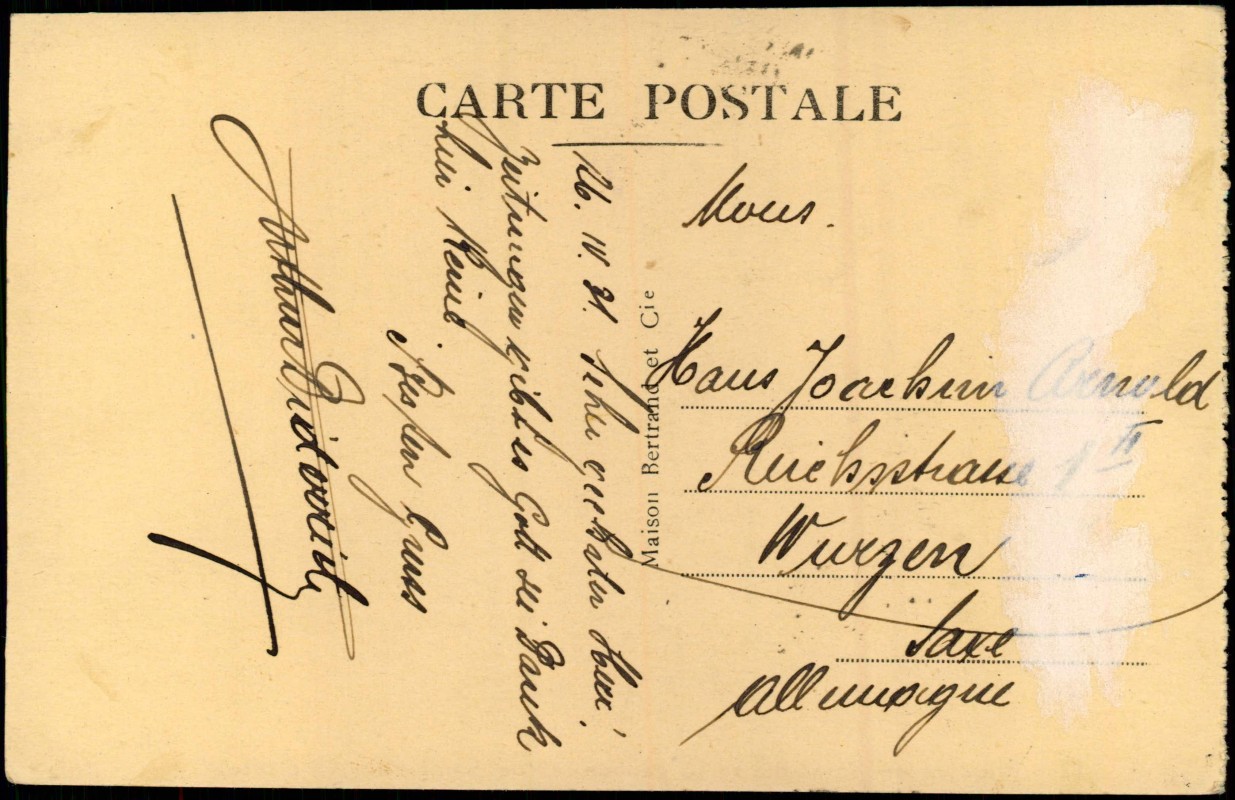 CARTE POSTALE
26. IV. 31. Sehr geehrter Herr!
Zeitungen gibt es Gott sei Dank
hier keine.
Besten Gruss
Arthur
Maison Bertrand et Cie
Mons.
Hans Joachim Arnold
Reichsstrasse 1 II
Wurzen
Saxe
Allemagne